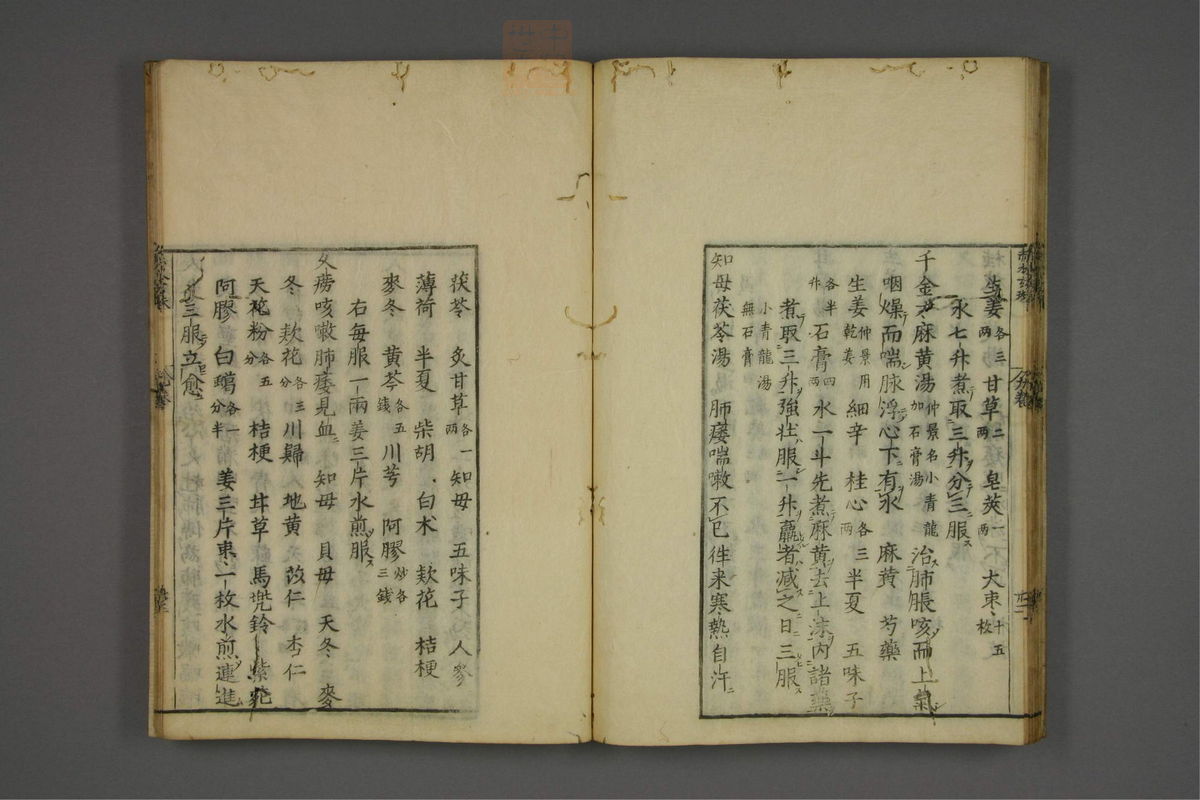 生姜各三兩 甘草二兩 皂莢一兩 大棗十五枚
水七升煮取三升分三服ス
千金方麻黄湯仲景名小青龍加石膏湯 治肺脹咳而上氣
咽燥而喘脉浮心下有水 麻黄 芍藥
生姜仲景用乾姜 細辛 桂心各三兩 半夏 五味子
各半升 石膏四兩 水一斗先煮麻黄去上沫内諸藥
煮取三升強壮服一升羸者减之日三服
小青龍湯無石膏
知母茯苓湯 肺痿喘嗽不已徃来寒熱自汗
茯苓 炙甘草各一兩 知母 五味子 人參
薄荷 半夏 柴胡 白术 欵花 桔梗
麥冬 黄芩各五錢 川芎 阿膠炒各三錢
右毎服一兩姜三片水煎服ス
又癆咳嗽肺痿見血 知母 貝母 天冬 麥
冬 欵花各三分 川歸 地黄 苡仁 杏仁
天花粉各五分 桔梗 甘草 馬兠鈴 紫菀
阿膠 白蠟各一分半 姜三片棗一枚水煎連進
三服立愈